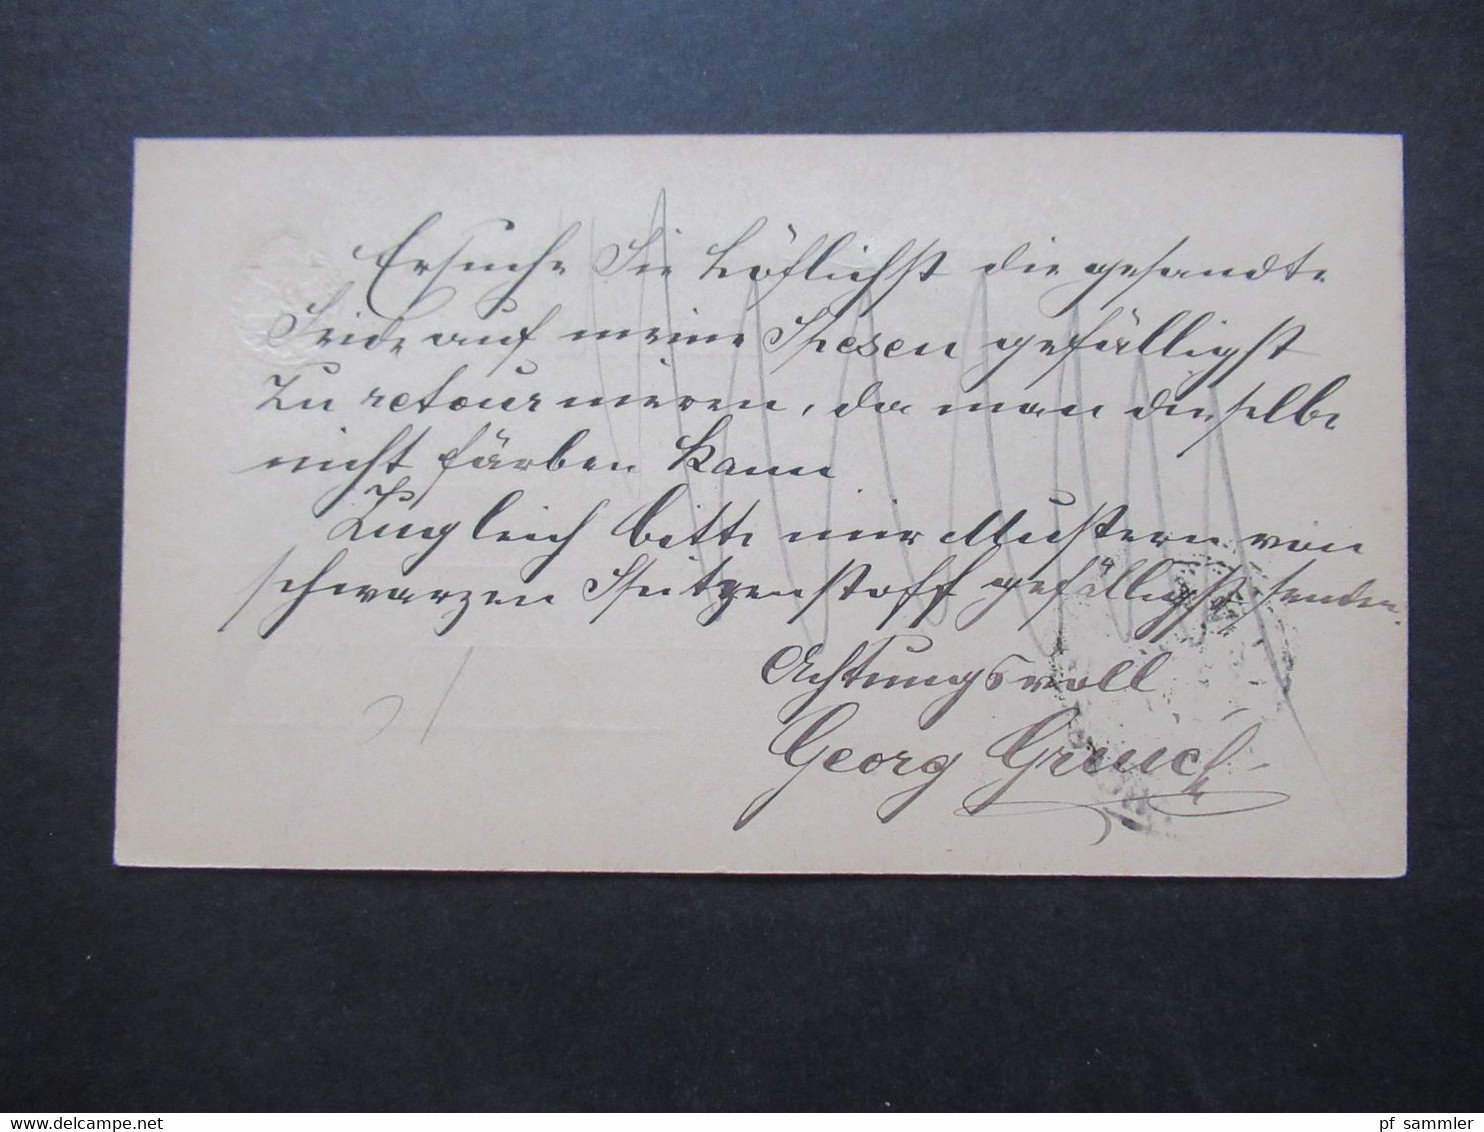 Ersuche Sie höflichst die gesandte
Seide auf meine Spesen gefälligst
zu retournieren, da man dieselbe
nicht färben kann
Zugleich bitte mir Mustern von
schwarzen Spitzenstoff gefälligst senden.
Achtungsvoll
Georg
www.delcampe.net
pf_sammler